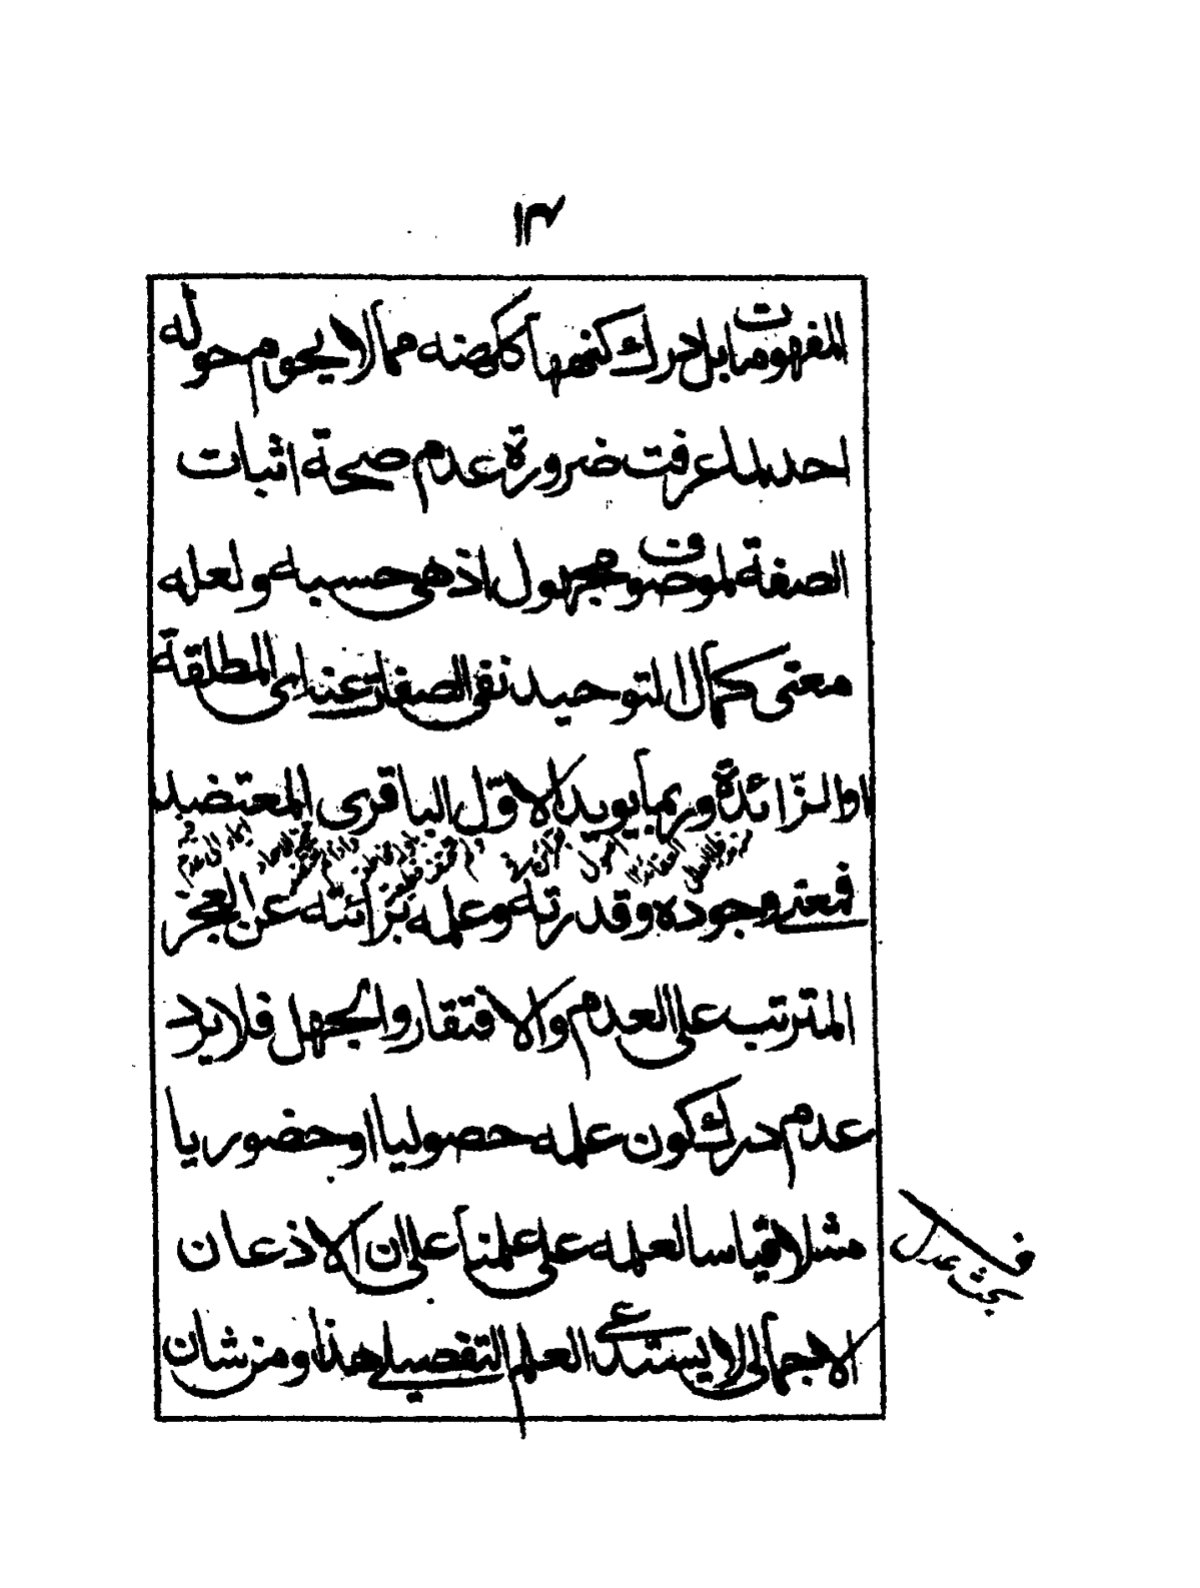 ١٣
المفهومات بل درك كنهها ككهنه مما لا يحوم حوله
احد لما عرفت ضرورة عدم صحة اثبات
الصفة لموصوف مجهول اذ هي حسبه ولعله
معنى كمال التوحيد نفى الصفات عنه اى المطلقة
او الزائدة وربما يويد الاوّل الباقرى المعتضد
فمعنى وجوده وقدرته وعلمه بزائته عن العجز
المترتب على العدم والافتقار والجهل فلا يرد
عدم درك كون علمه حصوليا او حضوريا
مثلا قياسا لعلمه على علمنا على ان الاذعان
الاجمالى لا يستدعى العلم التفصيلى هذا ومن شان
بحث عدل